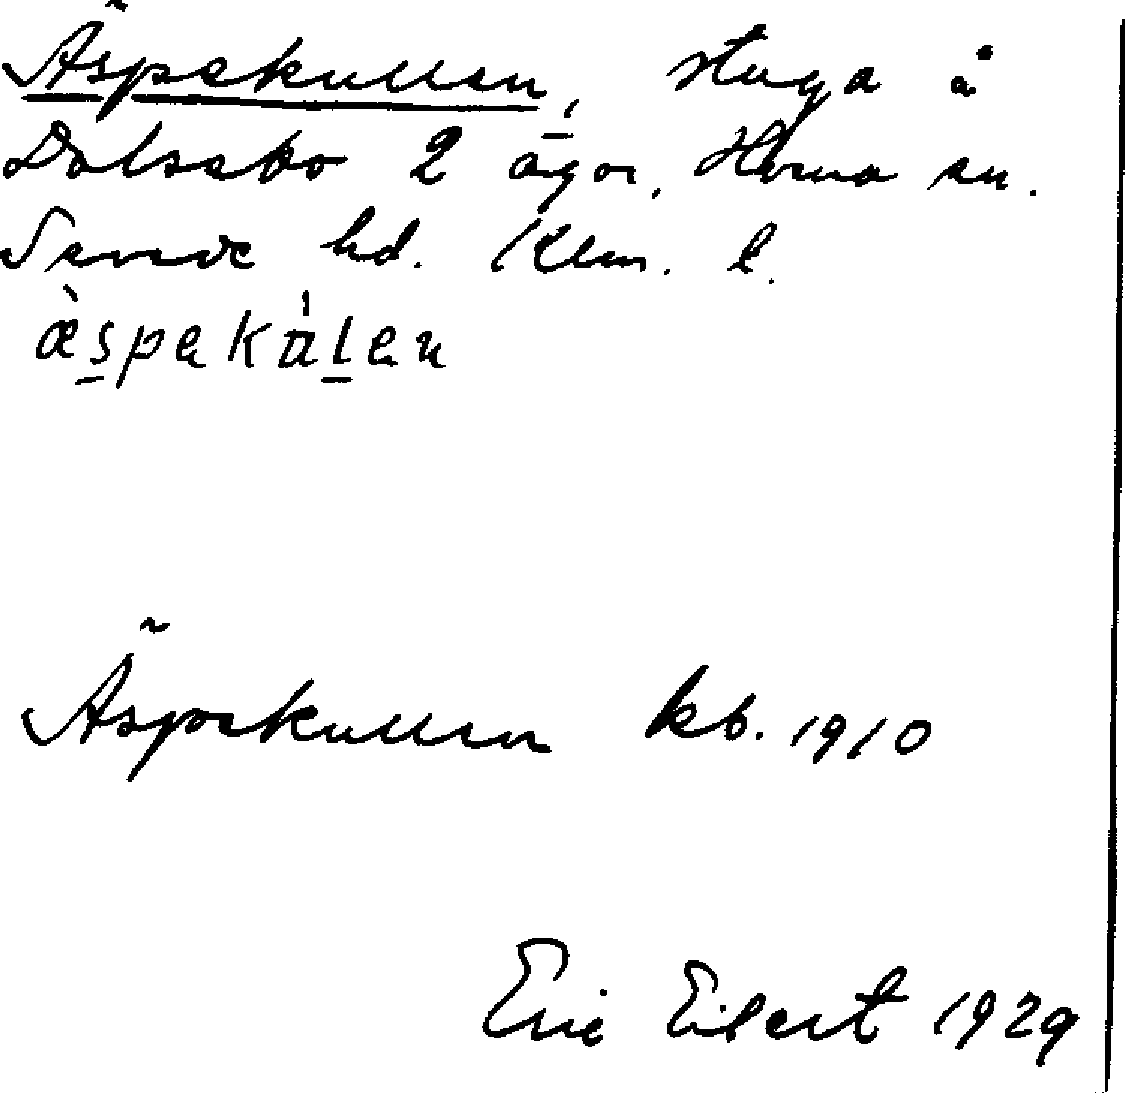 Äspekullen, stuga å
Dalsebo 2 ägor, Hvena sn.
Sevede hd. Klm. l.
æ̀spekàlen
Äspekullen kb. 1910
Eric Eilert 1929